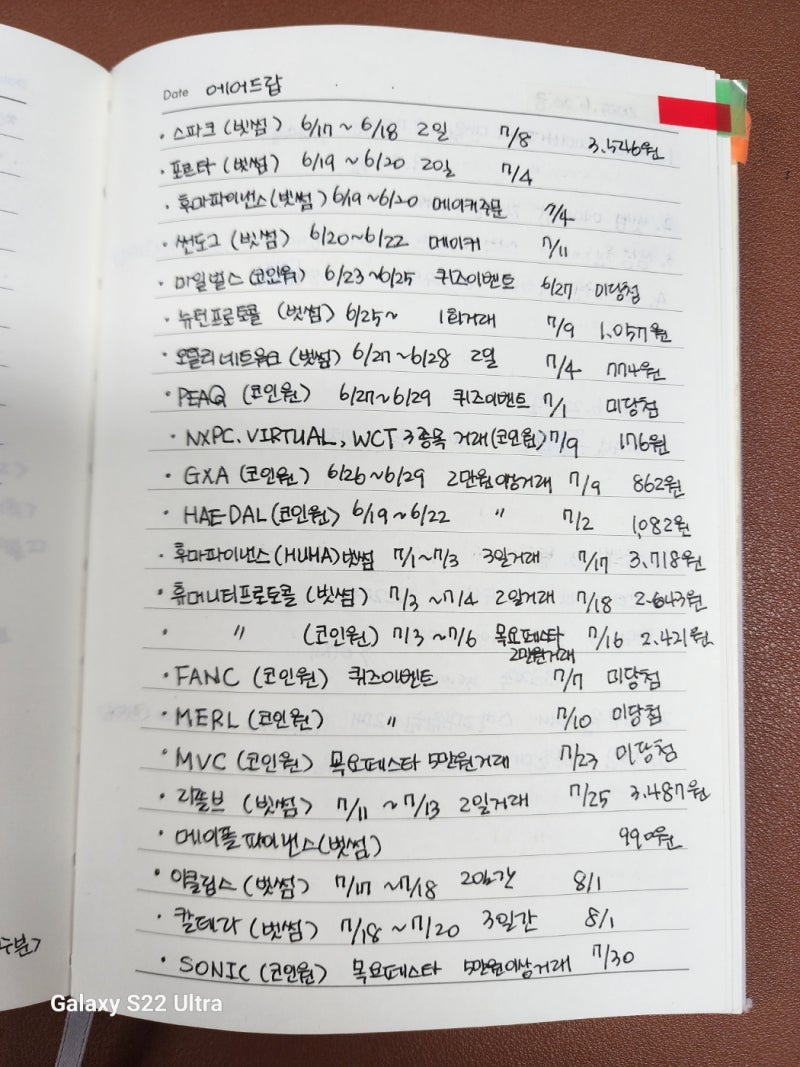 Date 에어드랍
· 스파크 (빗썸) 6/17 ~ 6/18 2일 7/8 3.546원
· 포르타 (빗썸) 6/19 ~ 6/20 2일 7/4
· 후마파이낸스 (빗썸) 6/19 ~ 6/20 메이커주문 7/4
· 썬도그 (빗썸) 6/20 ~ 6/22 메이커 7/11
· 마일벌스 (코인원) 6/23 ~ 6/25 퀴즈이벤트 6/27 미당첨
· 뉴턴프로토콜 (빗썸) 6/25 ~ 1회거래 7/9 1.057원
· 오믈리네트워크 (빗썸) 6/27 ~ 6/28 2일 7/4 774원
· PEAQ (코인원) 6/27 ~ 6/29 퀴즈이벤트 7/1 미당첨
· NXPC. VIRTUAL, WCT 3종목 거래 (코인원) 7/9 176원
· GXA (코인원) 6/26 ~ 6/29 2만원이상거래 7/9 862원
· HAEDAL (코인원) 6/19 ~ 6/22 〃 7/2 1,082원
· 후마파이낸스 (HUHA) 빗썸 7/1 ~ 7/3 3일거래 7/17 3.718원
· 휴머니티프로토콜 (빗썸) 7/3 ~ 7/4 2일거래 7/18 2.643원
· 〃 (코인원) 7/3 ~ 7/6 목요페스타 7/16 2.421원
2만원거래
· FANC (코인원) 퀴즈이벤트 7/7 미당첨
· MERL (코인원) 〃 7/10 미당첨
· MVC (코인원) 목요페스타 5만원거래 7/23 미당첨
· 리졸브 (빗썸) 7/11 ~ 7/13 2일거래 7/25 3.487원
· 메이플파이낸스 (빗썸) 990원
· 이클립스 (빗썸) 7/17 ~ 7/18 2일간 8/1
· 칼데라 (빗썸) 7/18 ~ 7/20 3일간 8/1
· SONIC (코인원) 목요페스타 5만원이상거래 7/30
Galaxy S22 Ultra